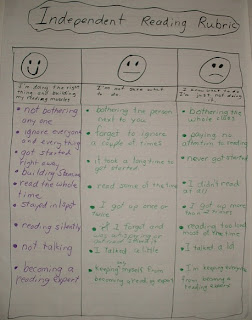 Independent Reading Rubric
I'm doing the right
thing and building
my reading muscles
• not bothering
any one
• ignore everyone
and everything
• got started
right away
• building stamina
• read the whole
time
• stayed in 1 spot
• reading silently
• not talking
• becoming a
reading expert
I'm not sure what
to do.
• bothering the person
next to you
• forget to ignore
a couple of times
• it took a long time to
get started
• read some of the time
• I got up once or
twice
• I forgot and
• I talked a little
• keeping myself from
becoming a reading expert
I know what to do
I'm just not doing
it.
• bothering the
whole class
• paying no
attention to reading
• never got started
• I didn't read
at all
• I got up more
than 2 times
• reading too loud
most of the time
• I talked a lot
• I'm keeping myself
from becoming
a reading expert